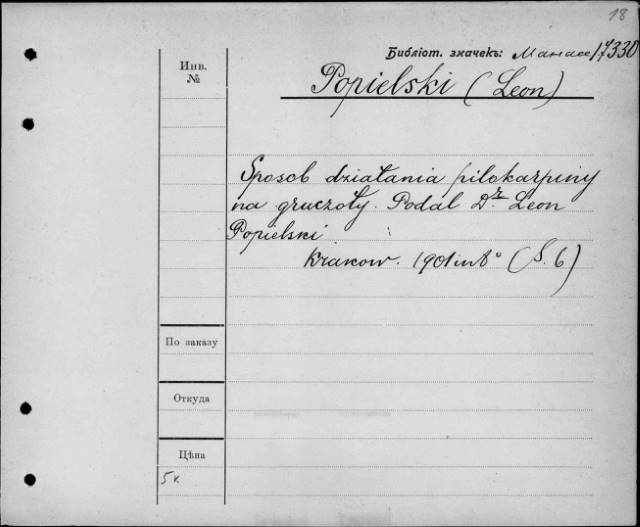 18
Библіот. значекъ: Манасс 17330
Инв.
№
Popielski (Leon)
Sposob działania pilokarpiny
na gruczoły. Podal Dr. Leon
Popielski
Krakow. 1901 in 8° (S. 6)
По заказу
Откуда
Цѣна
5 к.